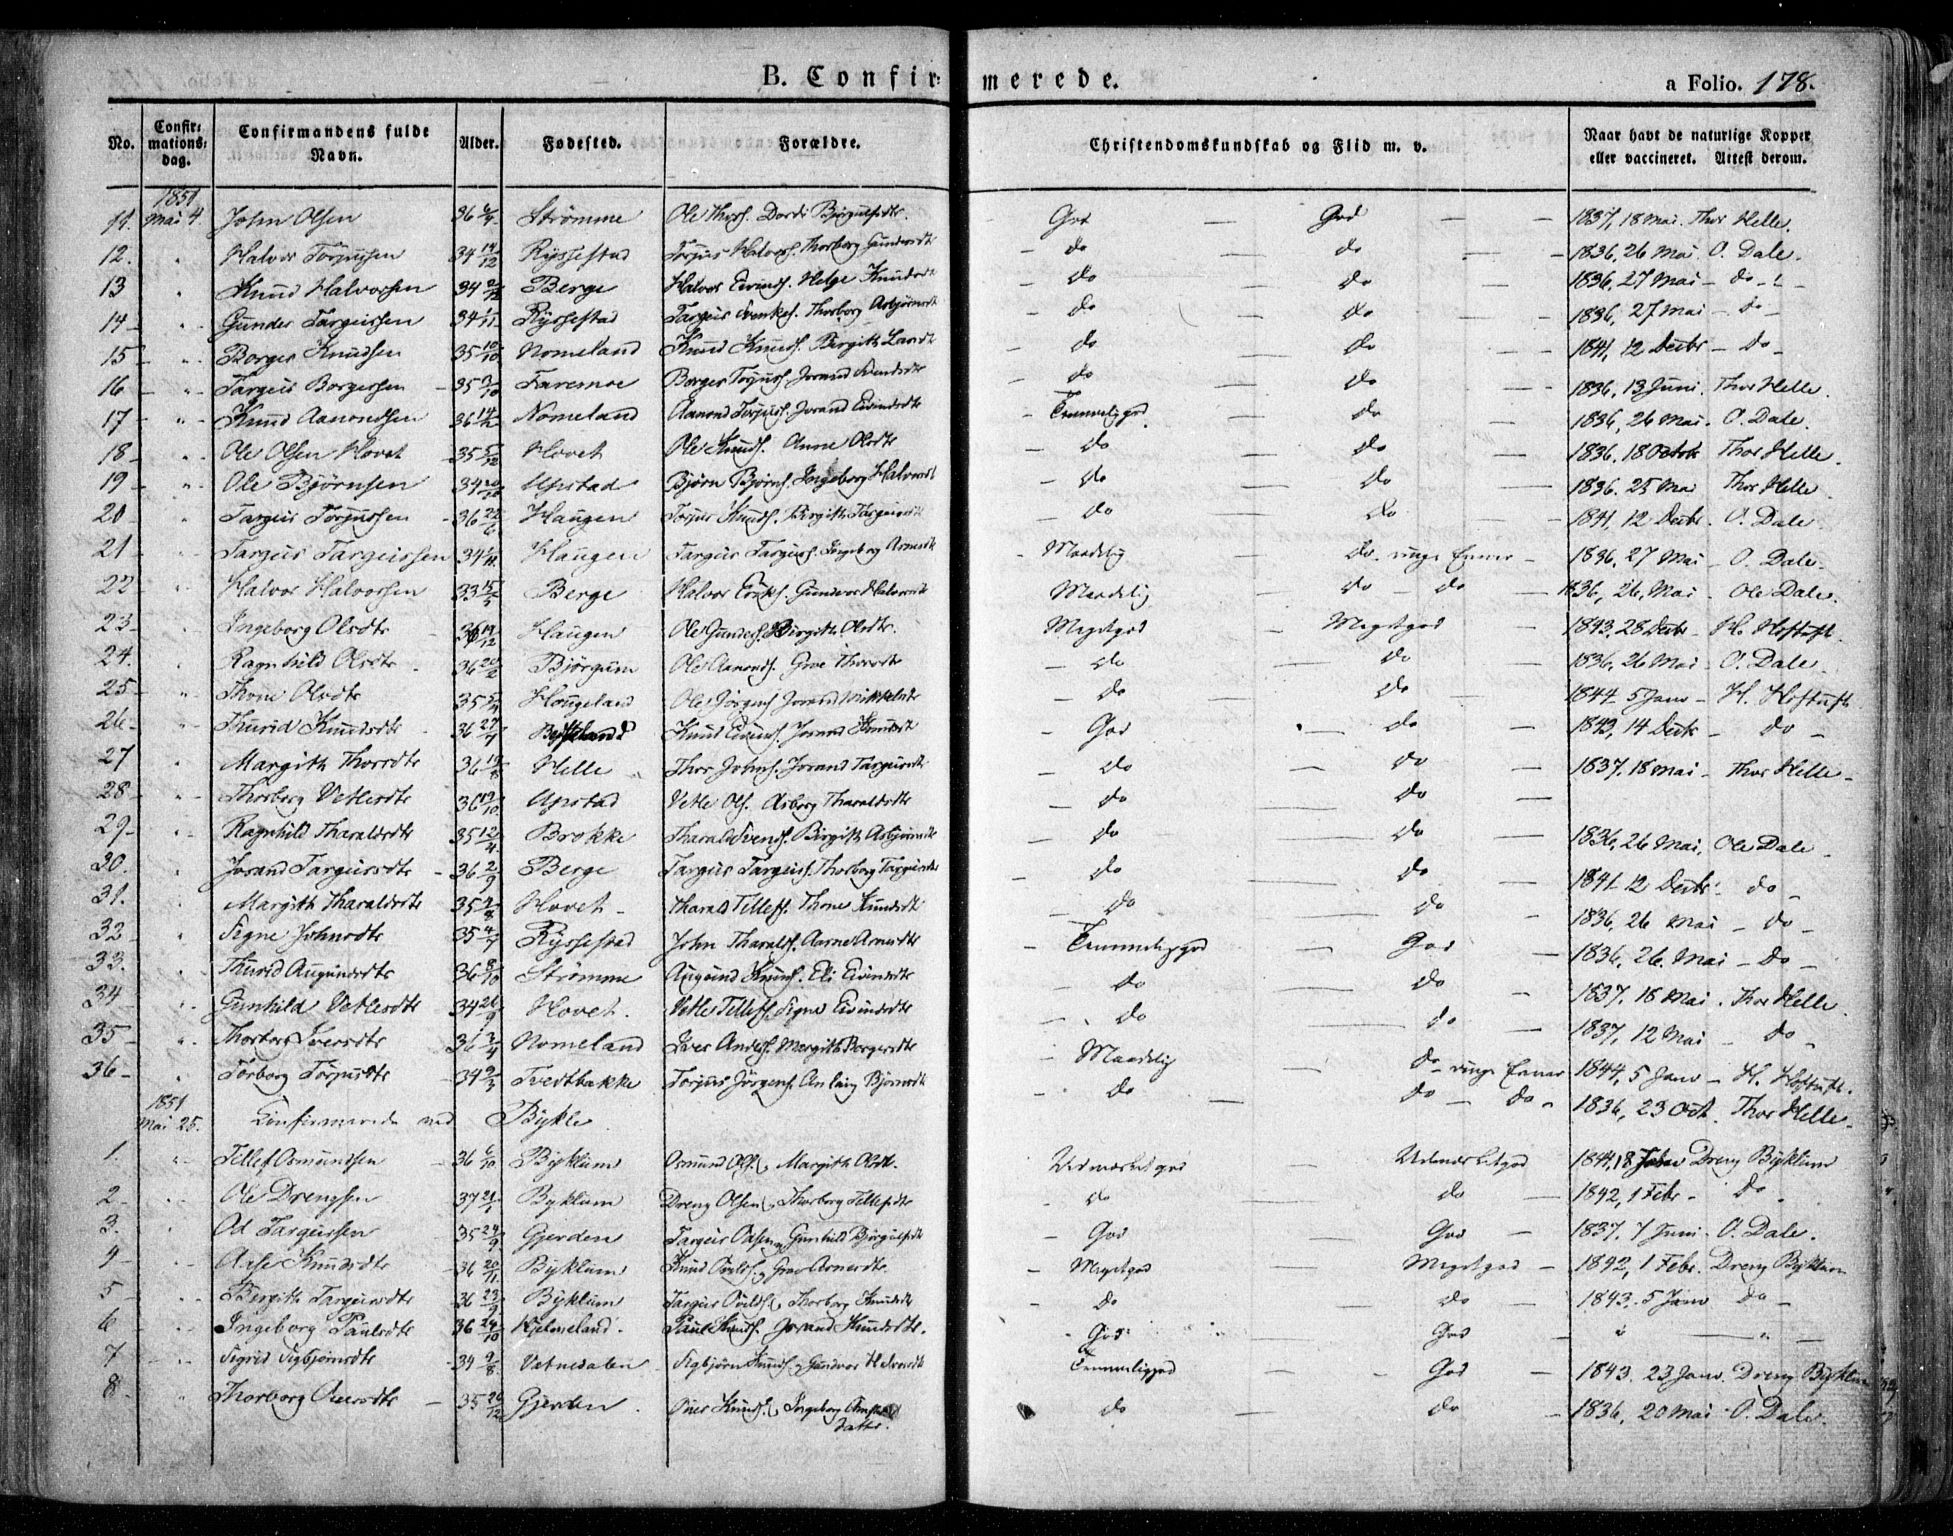 B. Confirmerede.
a Folio. 178.
No. Confirmationsdag. Confirmandens fulde Navn. Alder. Fødested. Forældre. Christendomskundskab og Flid m. v. Naar havt de naturlige Kopper eller vaccineret. Attest derom.
1851
11. Mai 4. John Olsen 36 Strømme Ole Thors. Dordi Bjørgulfsdtr. God — God — — 1837, 18 Mai. Thor Helle.
12. " Halvor Torjussen 34 14/12 Ryssestad Torjus Halvors. Thorborg Gundersdt — do do — 1836, 26 Mai O. Dale.
13 " Knud Halvorsen 34 Berge Halvor Eivinds. Helge Knudsdt — do do 1836, 27 Mai — do
14 " Gunder Targeissen 34 1/11 Ryssestad Targeis Svenkes. Thorborg Asbjørnsdt — do do 1836, 27 Mai — do
15 " Borger Knudsen 35 10/10 Nomeland Knud Knuds. Birgith — do do — 1841, 12 Decbr — do
16 " Targeis Borgersen 35 Faremoe Borger Torjus. Jorand Svendsdt — do do — 1836, 13 Juni. Thor Helle.
17 " Knud Aanondsen 36 14/12 Nomeland Aanond Torjus. Jorand Eivindsdtr — Temmelig god do — 1836, 26 Mai. O. Dale.
18 " Ole Olsen Hovet 35 5/12 Hovet Ole Knuds. Anne Olsdtr — do do — 1836. 18 Octbr Thor Helle.
19 " Ole Bjørnsen 34 Upstad Bjørn Bjørns. Ingeborg Halvorsdt — do do 1836. 25 Mai Thor Helle.
20 " Targeis Torjussen 36 22/6 Haugen Torjus Knuds. Birgith Targeisdt — do do 1841, 12 Decbr. O. Dale
21 " Targeis Targeissen 34 Haugen Targeis Targeis. Ingeborg Arnesdt — Maadelig do ringe Evner — 1836, 27 Mai — O. Dale.
22 " Halvor Halvorsen 33 15/5 Berge Halvor Gundvor Halvorsdt Maadelig do — do — 1836, 26 Mai. Ole Dale.
23 " Ingeborg Olsdtr 36 19/12 Haugen Ole Gunders. Birgith Olsdtr. Megetgod — Megetgod — 1843, 28 Decbr — H. Hoftuft.
24. " Ragnhild Olsdtr 36 20/2 Bjørgum Ole Aanonds. Groe Thorsdtr — do do — 1836, 26 Mai — O. Dale.
25 " Thone Olsdtr 35 Hougeland Ole Jørgens Jorand Mikkelsdtr — do do — 1844 5 Janv — H. Hoftuft
26 " Thurid Knudsdtr 36 27/7 Knud Eivinds. Jorand Knudsdt — God do — 1843, 14 Decbr — do
27 " Margith Thorsdtr 36 Helle Thor Johns. Jorand Targeisdtr — do do 1837. 18 Mai — Thor Helle
28 " Thorborg Vetlesdtr 36 Upstad Vetle Ols. Asborg Tharaldsdtr — do do
29 " Ragnhild Tharaldsdtr 35 12/4 Brokke Tharald Svends. Birgith Asbjørnsdt — do do — 1836, 26 Mai. Ole Dale
30. " Jorand Targeisdtr 36 2/9 Berge Targeis Targeis. Thorborg Targeisdtr — do do — 1841 12 Decbr — do
31. " Margith Tharaldsdtr 35 Hovet Tharald Tellefs. Thone Knudsdt — do do 1836, 26 Mai — do
32 " Signe Johnsdtr 35 4/7 Ryssestad John Tharalds. Aasne Arnesdtr — Temmeliggod — God — 1836, 26. Mai — do
33. " Thurid Augundsdtr 36 8/10 Strømme Augund Knuds. Eli Eivindsdtr — do do — 1837, 18 Mai. Thor Helle.
34 " Gunhild Vetlesdtr 34 Hovet. Vetle Tellefs. Signe Eivindsdtr — do do — 1837, 12 Mai — do
35 " Iversdtr 36 3/4 Nomeland Iver Anders. Margith Borgersdtr — Maadelig do — ringe Evner 1844, 5 Janv — H. Hoftuft.
36 " Torborg Torjusdtr 34 Tvedtbakke Torjus Jørgens. Anlaug Bjørnsdt — do do — do 1836, 23 Oct. Thor Helle.
1851
Mai 25. Confirmerede ved Bykle.
1. " Tellef Osmundsen 36 6/10 Byklum Osmund Ols. & Margith Olsdt. Udmærketgod Udmærketgod 1844, 18 Dreng Byklum
2 " Ole Drengsen 37 21/1 Byklum Dreng Olsen & Thorborg Tellefsdtr — do do — 1842, 1 Febr. do
3. " Od Targeissen 35 24/9 Gjerden Targeis Odsen & Gunhild Bjørgulfsdt — God God — 1837, 7 Juni — O. Dale.
4 " Knudsdtr 36 20/11 Byklum Knud & Groe Arnesdtr. — Megetgod Megetgod — 1842, 1 Febr. Dreng Byklum
5 " Bergith Targeisdtr 36 23/9 Byklum Targeis & Thorborg Knudsdtr — do do — 1843. 5 Janv do
6 " Ingeborg Paulsdtr 36 24/10 Kjelmeland. Paul Knuds. & Jorand Knudsdtr. — God God — " — " —
7 " Sigrid Sigbjørnsdtr 34 9/8 Vatnedalen Sigbjørn Knuds. & Gundvor — Temmeliggod — God — 1843. 23 Janv. Dreng Byklum
8 " Thorborg 35 20/12 Gjerden Knuds. & Ingeborg datter. do — do — 1836, 20 Mai — O. Dale.